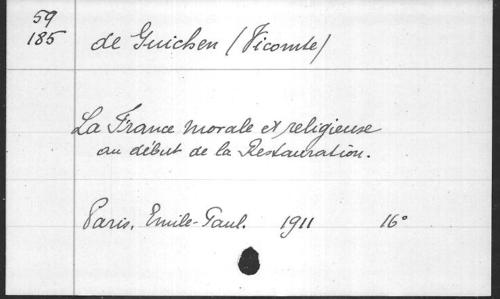 59
185
de Guichen (Vicomte)
La France morale et religieuse
au début de la Restauration.
Paris, Emile-Paul. 1911 16°